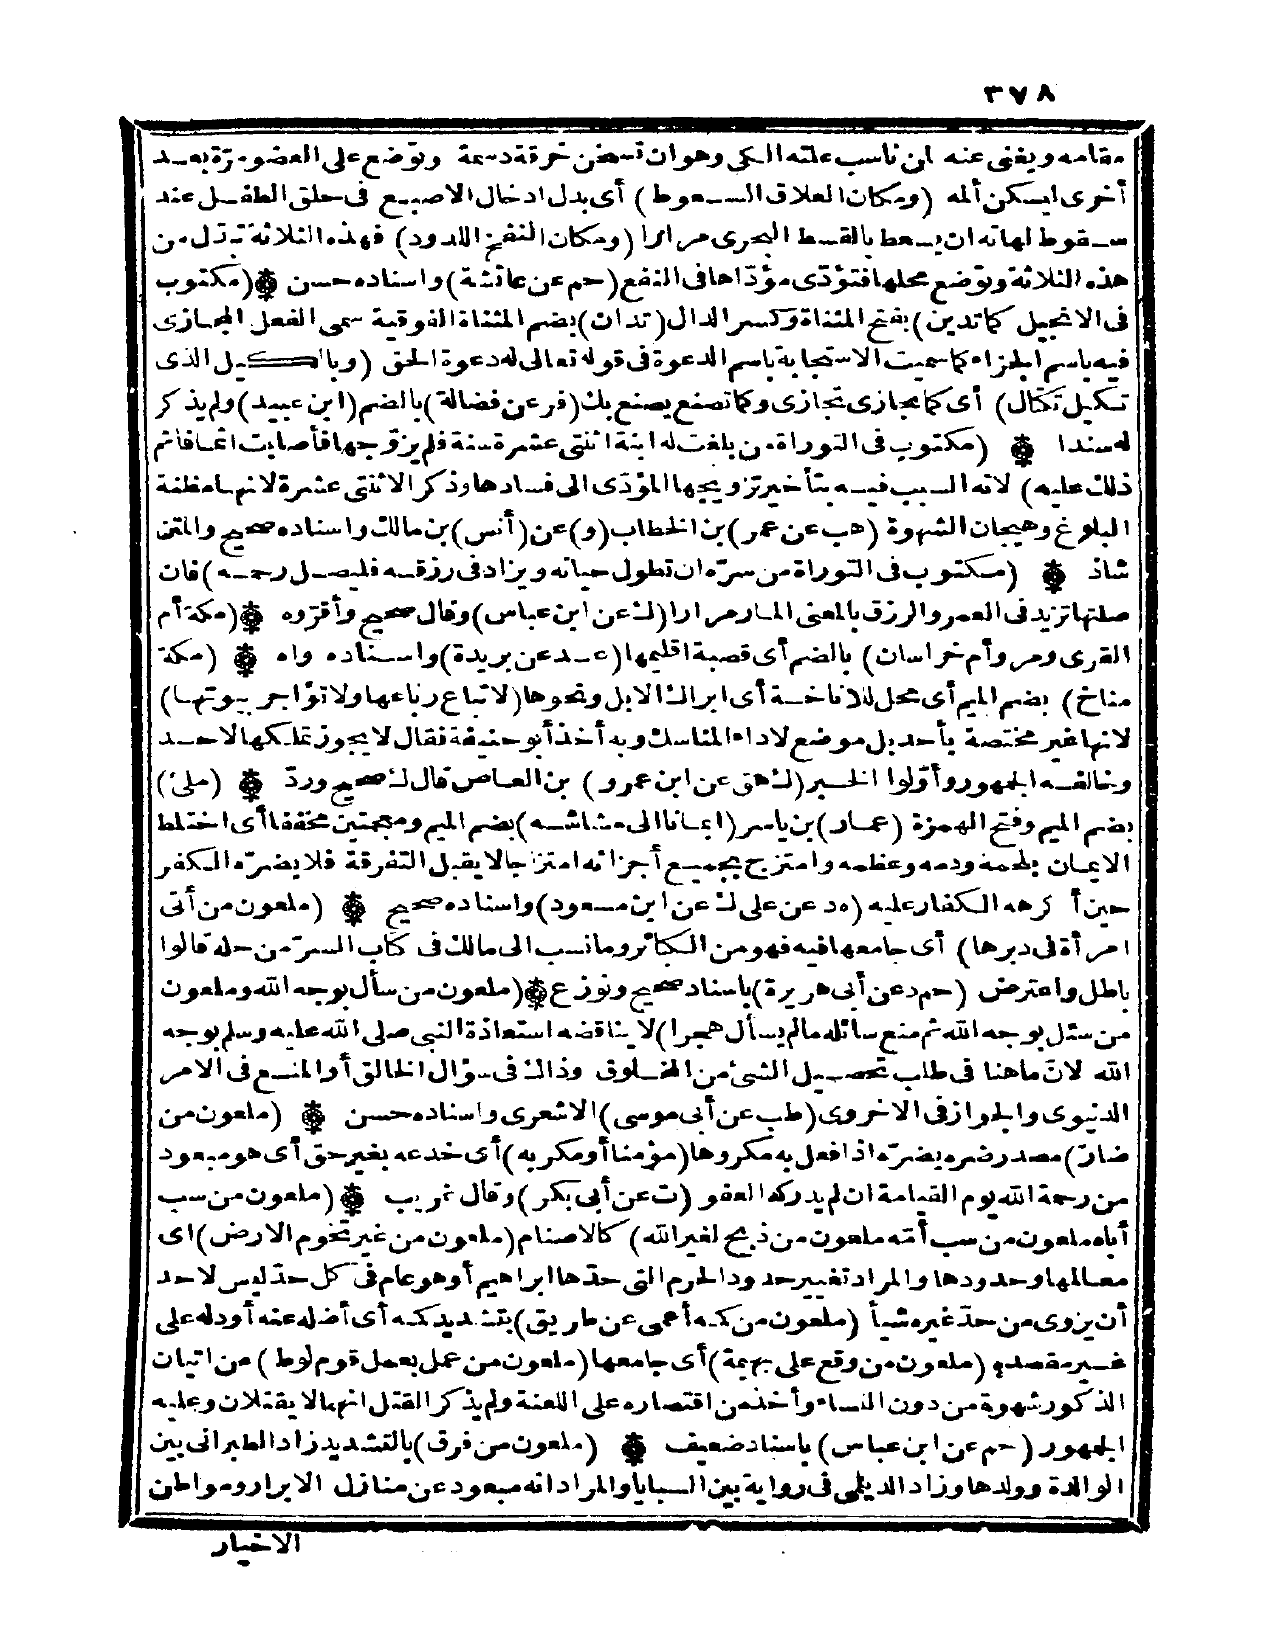 ٣٧٨
مقامه ويغنى عنه لمن ناسب علته الكى وهوان تسخن خرقة دسمة وتوضع على العضو مرة بعد
أخرى ليسكن ألمه (ومكان العلاق السعوط) أى بدل ادخال الاصبع فى حلق الطفل عند
سقوط لهاته ان يسعط بالقسط البحرى مرارا (ومكان النفخ اللدود) فهذه الثلاثة تبدّل من
هذه الثلاثة وتوضع محلها فتؤدّى مؤدّاها فى النفع (حم عن عائشة) واسناده حسن (مكتوب
فى الانجيل كما تدين) بفتح المثناة وكسر الدال (تدان) بضم المثناة الفوقية سمى الفعل المجازى
فيه باسم الجزاء كما سميت الاستجابة باسم الدعوة فى قوله تعالى له دعوة الحق (وبالكيل الذى
تكيل تكال) أى كما تجازى تجازى وكما تصنع يصنع بك (فر عن فضالة) بالضم (ابن عبيد) ولم يذكر
له سندا (مكتوب فى التوراة من بلغت له ابنة اثنتى عشرة سنة فلم يزوّجها فأصابت اثما فاثم
ذلك عليه) لانه السبب فيه بتأخير تزويجها المؤدّى الى فسادها وذكر الاثنتى عشرة لانها مظنة
البلوغ وهيجان الشهوة (هب عن عمر) بن الخطاب (و) عن (أنس) بن مالك واسناده صحيح والمتن
شاذ (مكتوب فى التوراة من سرّه ان تطول حياته ويزاد فى رزقه فليصل رحمه) فان
صلتها تزيد فى العمر والرزق بالمعنى المار مرارا (ك عن ابن عباس) وقال صحيح وأقرّوه (مكة أم
القرى ومرو أم خراسان) بالضم أى قصبة اقليمها (عد عن بريدة) واسناده واه (مكة
مناخ) بضم الميم أى محل للاناخة أى ابراك الابل ونحوها (لا تباع رباعها ولا تؤاجر بيوتها)
لانها غير مختصة بأحد بل موضع لاداء المناسك وبه أخذ أبو حنيفة فقال لا يجوز تملكها لاحد
وخالفه الجمهور وأوّلوا الخبر (ك هق عن ابن عمرو) بن العاص قال ك صحيح وردّ (ملئ)
بضم الميم وفتح الهمزة (عمار) بن ياسر (ايمانا الى مشاشه) بضم الميم ومعجمتين مخففا أى اختلط
الايمان بلحمه ودمه وعظمه وامتزج بجميع أجزائه امتزاجا لا يقبل التفرقة فلا يضرّه الكفر
حين أكرهه الكفار عليه (ه عن على ك عن ابن مسعود) واسناده صحيح (ملعون من أتى
امرأة فى دبرها) أى جامعها فيه فهو من الكبائر وما نسب الى مالك فى كتاب السرّ من حله قالوا
باطل واعترض (حم د عن أبى هريرة) باسناد صحيح ونوزع (ملعون من سأل بوجه الله وملعون
من سئل بوجه الله ثم منع سائله ما لم يسأل هجرا) لا يناقضه استعاذة النبى صلى الله عليه وسلم بوجه
الله لانّ ما هنا فى طلب تحصيل الشئ من المخلوق وذاك فى سؤال الخالق أو المنع فى الامر
الدنيوى والجواز فى الاخروى (طب عن أبى موسى) الاشعرى واسناده حسن (ملعون من
ضارّ) مصدر ضره يضرّه اذا فعل به مكروها (مؤمنا أو مكر به) أى خدعه بغير حق أى هو مبعود
من رحمة الله يوم القيامة ان لم يدركه العفو (ت عن أبى بكر) وقال غريب (ملعون من سب
أباه ملعون من سب أمّه ملعون من ذبح لغير الله) كالاصنام (ملعون من غير تخوم الارض) اى
معالمها وحدودها والمراد تغيير حدود الحرم التى حدّها ابراهيم أو هو عام فى كل حدّ ليس لاحد
أن يزوى من حدّ غيره شيأ (ملعون من كمه أعمى عن طريق) بتشديد كمه أى أضله عنه أو دله على
غير مقصده (ملعون من وقع على بهيمة) أى جامعها (ملعون من عمل بعمل قوم لوط) من اتيان
الذكور شهوة من دون النساء وأخذ من اقتصاره على اللعنة ولم يذكر القتل انهما لا يقتلان وعليه
الجمهور (حم عن ابن عباس) باسناد ضعيف (ملعون من فرق) بالتشديد زاد الطبرانى بين
الوالدة وولدها وزاد الديلمى فى رواية بين السبايا والمراد انه مبعود عن منازل الابرار ومواطن
الاخيار